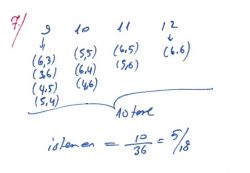 7.) 9 10 11 12
(6,3) (5,5) (6,5) (6.6)
(3,6) (6,4) (5,6)
(4,5) (4,6)
(5,4)
10 tane
istenen = 10/36 = 5/18